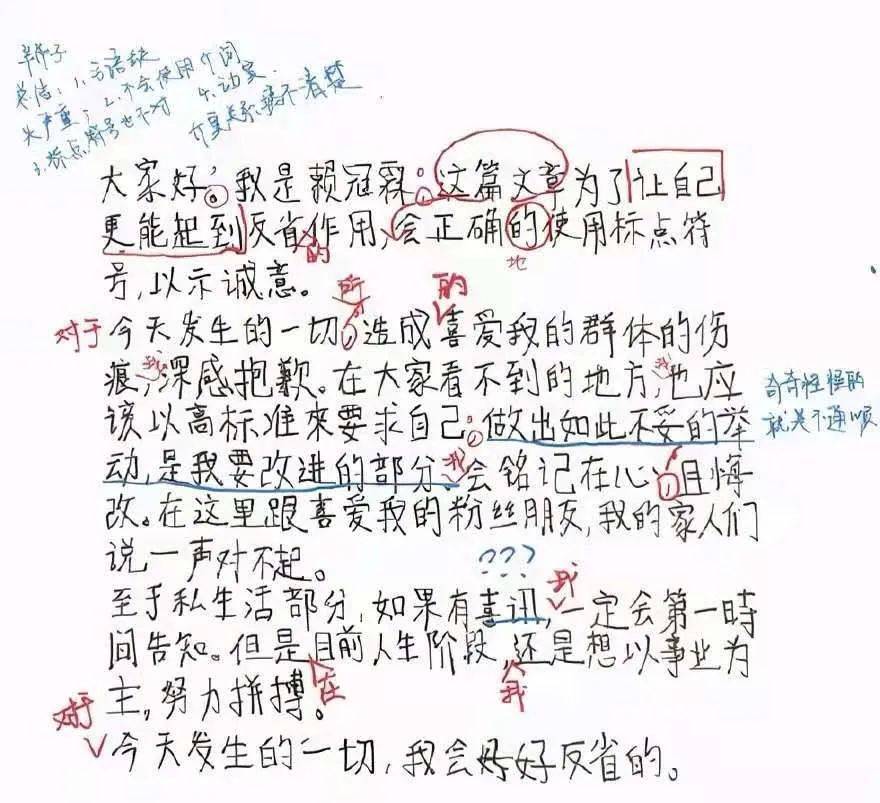 总结：1.主语缺
失严重；2.不会使用介词
3.标点符号也不对 4.动宾
大家好，我是赖冠霖。这篇文章为了让自己
更能起到反省作用，会正确的使用标点符
的
地
号，以示诚意。
所 的
对于今天发生的一切，造成喜爱我的群体的伤
痕，我深感抱歉。在大家看不到的地方，我也应
奇奇怪怪的
该以高标准来要求自己。做出如此不妥的举
就是不通顺
动，是我要改进的部分。我会铭记在心，且悔
改。在这里跟喜爱我的粉丝朋友，我的家人们
说一声对不起。
???
我
至于私生活部分，如果有喜讯，一定会第一時
间告知。但是目前人生阶段，还是想以事业为
在 我
主，努力拼搏。
对于
今天发生的一切，我会好好反省的。